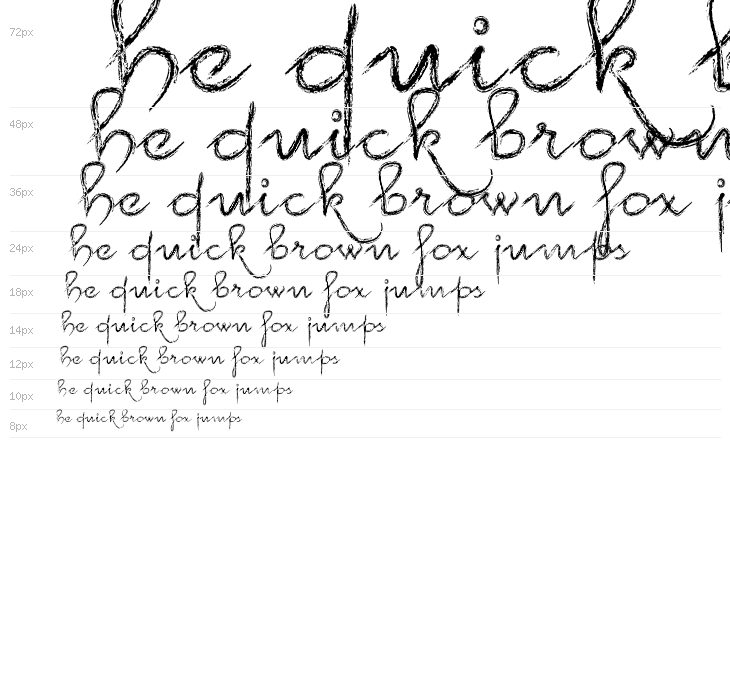 72px he quick b
48px he quick brown
36px he quick brown fox j
24px he quick brown fox jumps
18px he quick brown fox jumps
14px he quick brown fox jumps
12px he quick brown fox jumps
10px he quick brown fox jumps
8px he quick brown fox jumps